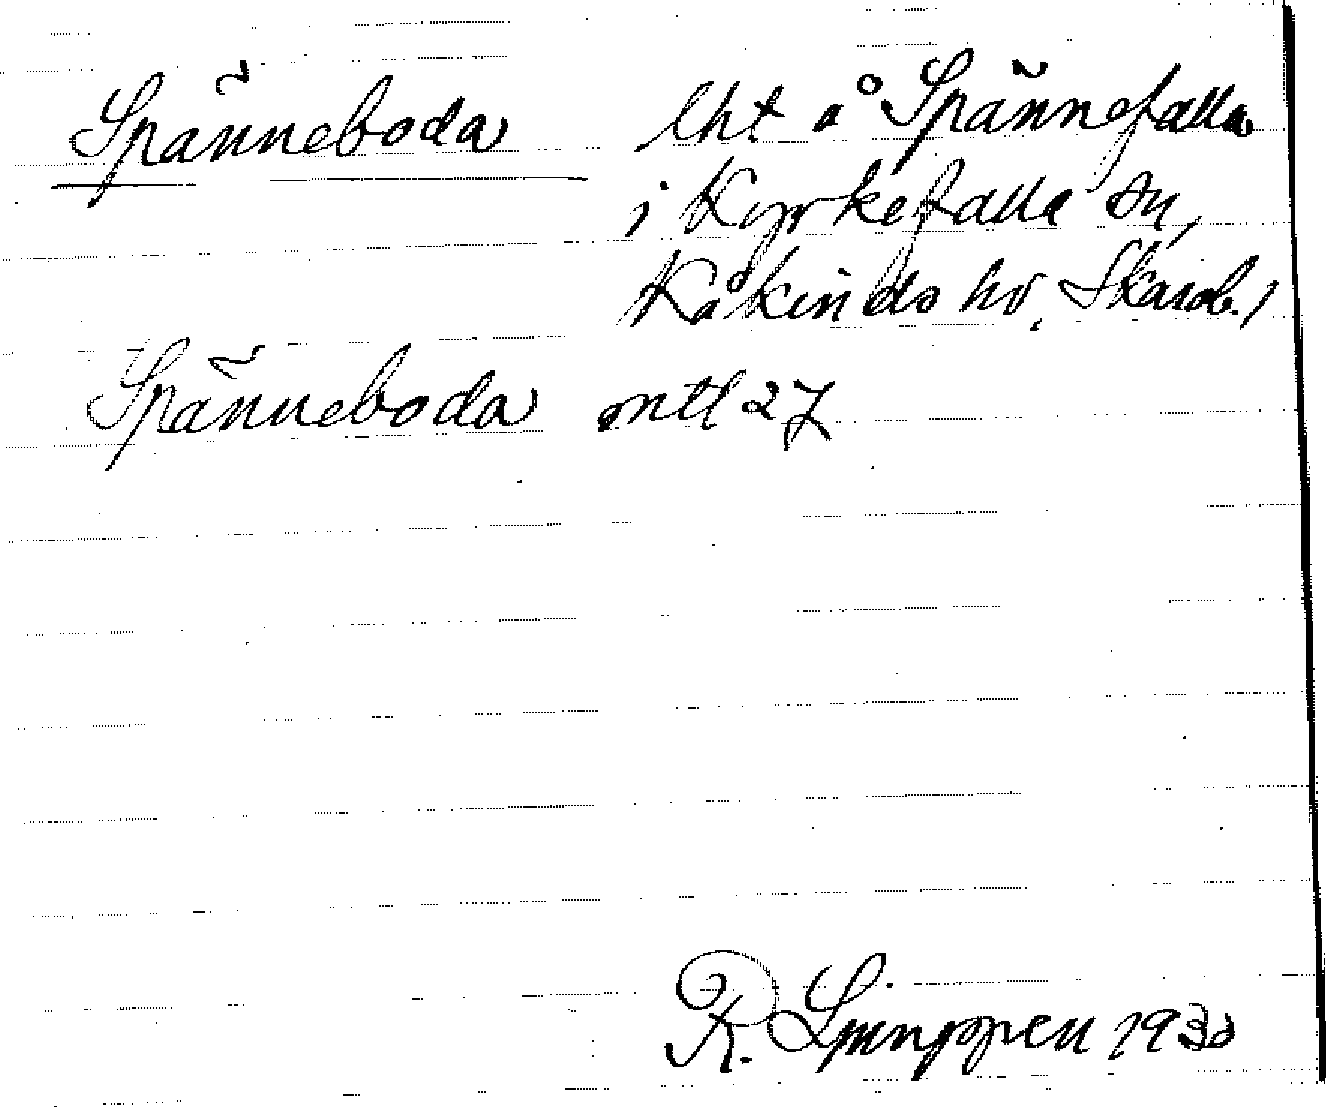 Spänneboda lht å Spännefalla
i Kyrkefalla sn,
Kåkinds hd, Skarab.l
Spänneboda mtl 27
R. Ljunggren 1933